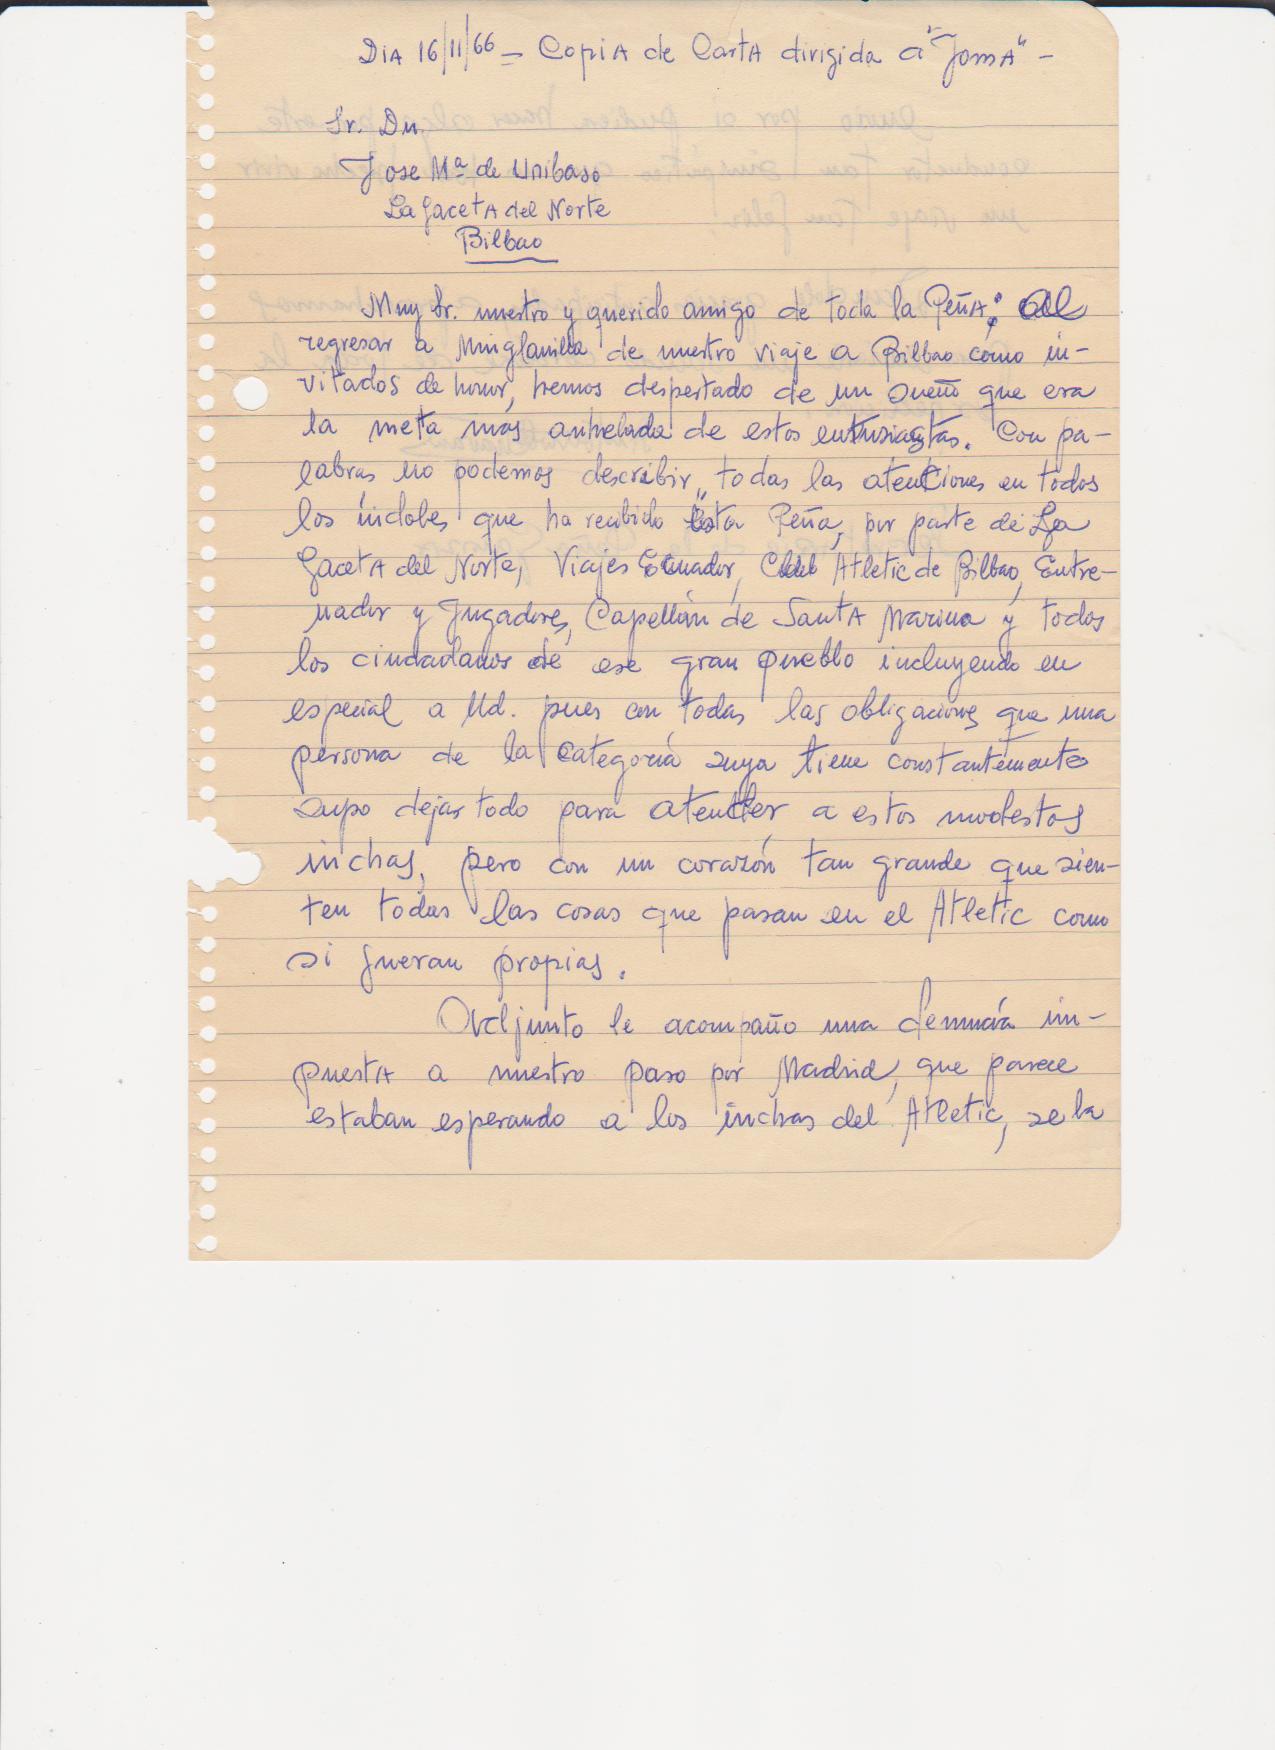 DIA 16/11/66 – Copia de Carta dirigida a "Joma" –
Sr. Dn.
Jose Mª de Uribaso
La Gaceta del Norte
Bilbao
Muy Sr. nuestro y querido amigo de toda la Peña: Al
regresar a Minglanilla de nuestro viaje a Bilbao como in-
vitados de honor, hemos despertado de un sueño que era
la meta más anhelada de estos entusiastas. Con pa-
labras no podemos describir, todas las atenciones en todos
los índoles que ha recibido esta Peña, por parte de La
Gaceta del Norte, Viajes Ecuador, Club Atletic de Bilbao, Entre-
nador y Jugadores, Capellán de Santa Marina y todos
los ciudadanos de ese gran pueblo incluyendo en
especial a Ud. pues con todas las obligaciones que una
persona de la categoría suya tiene constantemente
supo dejar todo para atender a estos modestos
inchas, pero con un corazón tan grande que sien-
ten todas las cosas que pasan en el Atletic como
si fueran propias.
Adjunto le acompaño una denuncia im-
puesta a nuestro paso por Madrid, que parece
estaban esperando a los inchas del Atletic, se la